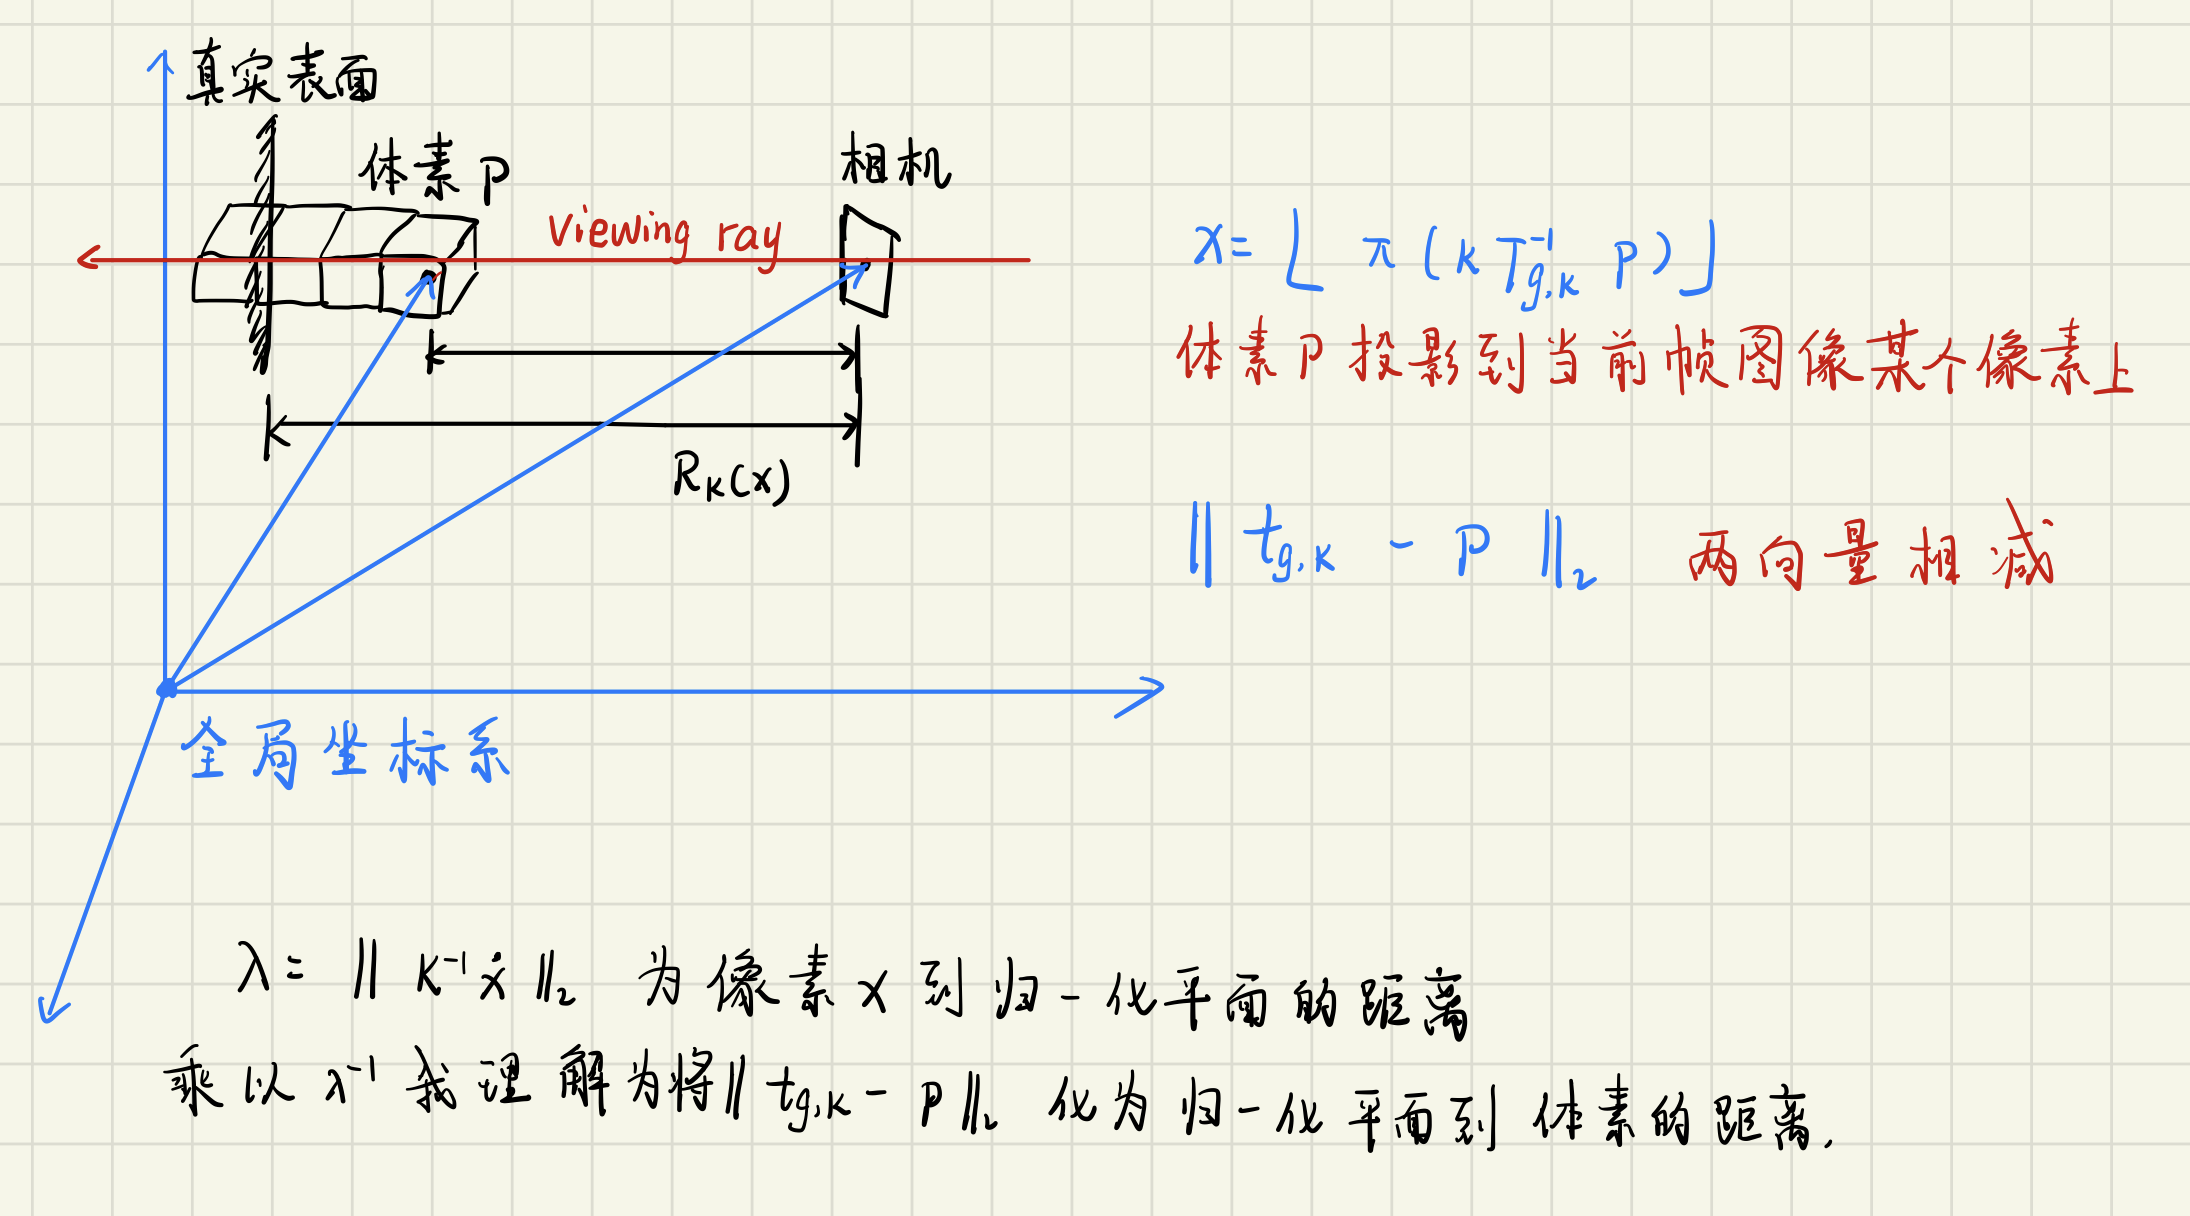 真实表面
体素 P
相机
viewing ray
R_K(x)
x = ⌊ π (K T_{g,k}^{-1} P) ⌋
体素 P 投影到当前帧图像某个像素上
‖ t_{g,k} - P ‖_2 两向量相减
全局坐标系
λ = ‖ K^{-1} ẋ ‖_2 为像素 x 到归一化平面的距离
乘以 λ^{-1} 我理解为将 ‖ t_{g,k} - P ‖_2 化为归一化平面到体素的距离.